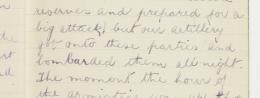 reserves and prepared for a
big attack) but our artillery
got onto these parties and
bombarded them all night.
The moment the hour of
the armistice was up